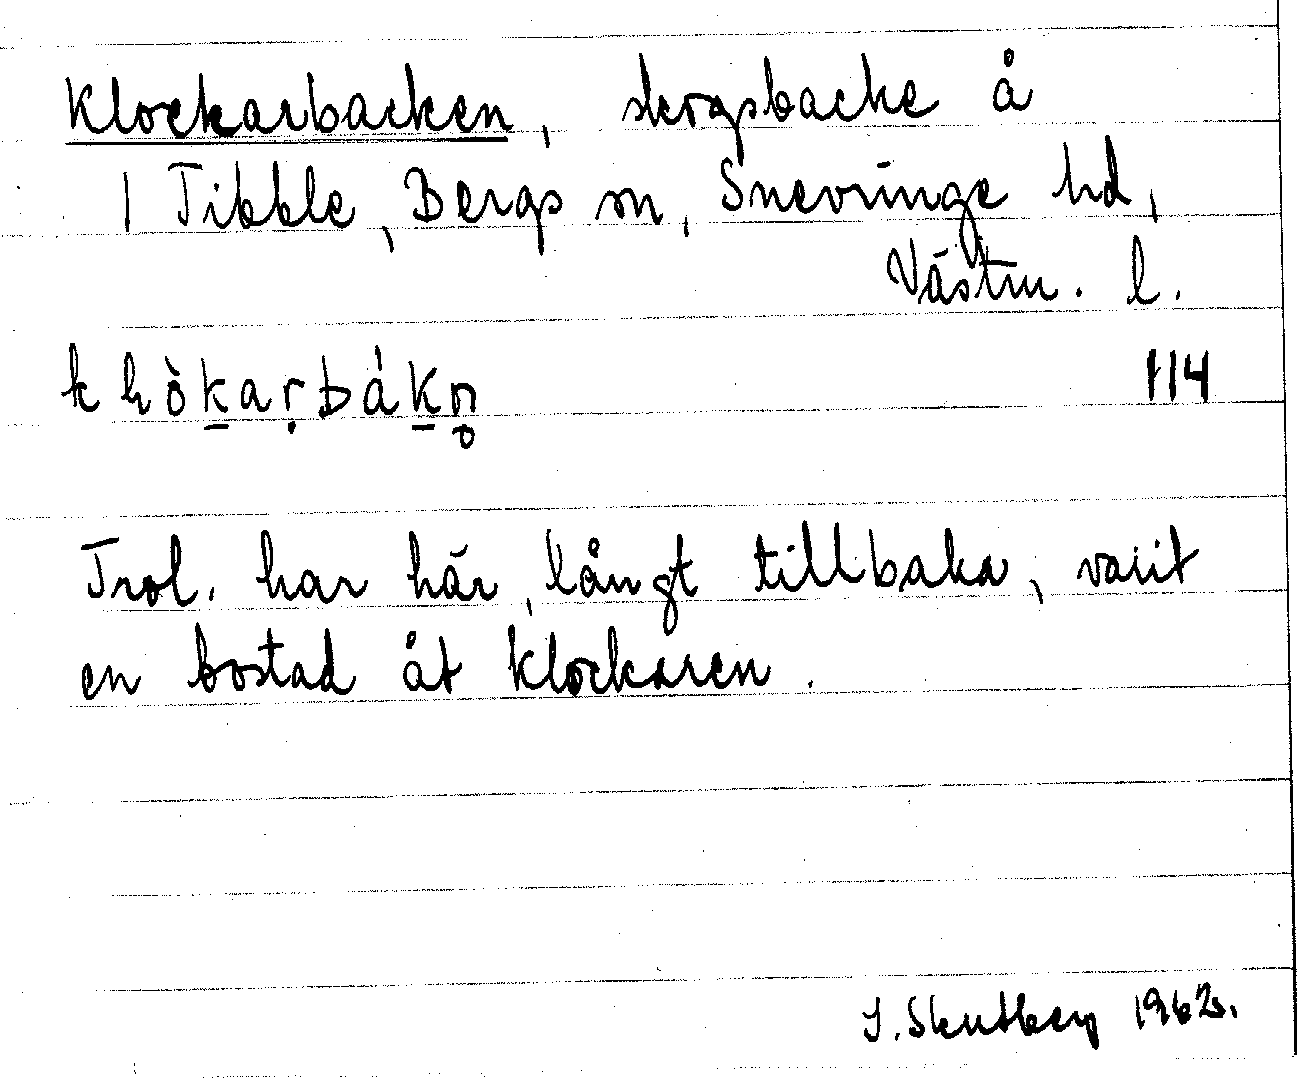 Klockarbacken, skogsbacke å
1 Tibble, Bergs sn, Snevringe hd,
Västm. l.
114
Trol. har här, långt tillbaka, varit
en bostad åt klockaren.
J. Skutberg 1962.